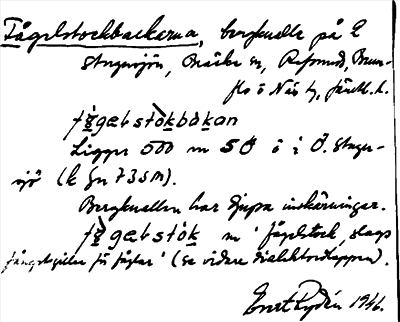 Fågelstockbackarna, bergkulle på L
Stugusjön, Bräcke sn, Refsunds, Brun-
flo o Näs tg, Jämtl. l.
fågelstòkbàkan
Ligger 500 m SÖ o i Ö. Stugu-
sjö (k gn 735m).
Bergkullen har djupa inskärningar.
fågelstòk m 'fågelstock, slags
fångstgiller för fåglar' (se vidare dialektordlappen).
Evert Rydén 1946.